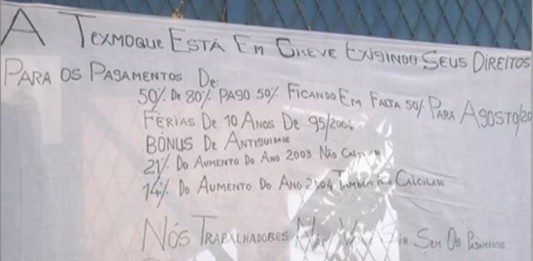 A TEXMOQUE ESTÁ EM GREVE EXIGINDO SEUS DIREITOS
PARA OS PAGAMENTOS DE:
50% DE 80% PAGO 50% FICANDO EM FALTA 50% PARA AGOSTO/20
FÉRIAS DE 10 ANOS DE 95/2004
BÓNUS DE ANTIGUIDADE
21% DO AUMENTO DO ANO 2003 NÃO
14% DO AUMENTO DO ANO 2004 TAMBÉM NÃO CALCULADO
NÓS TRABALHADORES NÃO SAIR SEM OS PAGAMENTOS